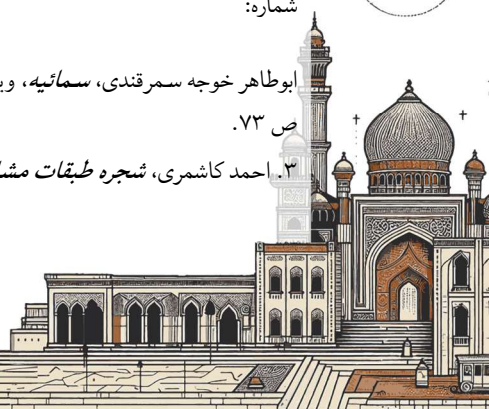 شماره:
ابوطاهر خوجه سمرقندی، سمائیه،
ص ۷۳.
۳. احمد کاشمری، شجره طبقات